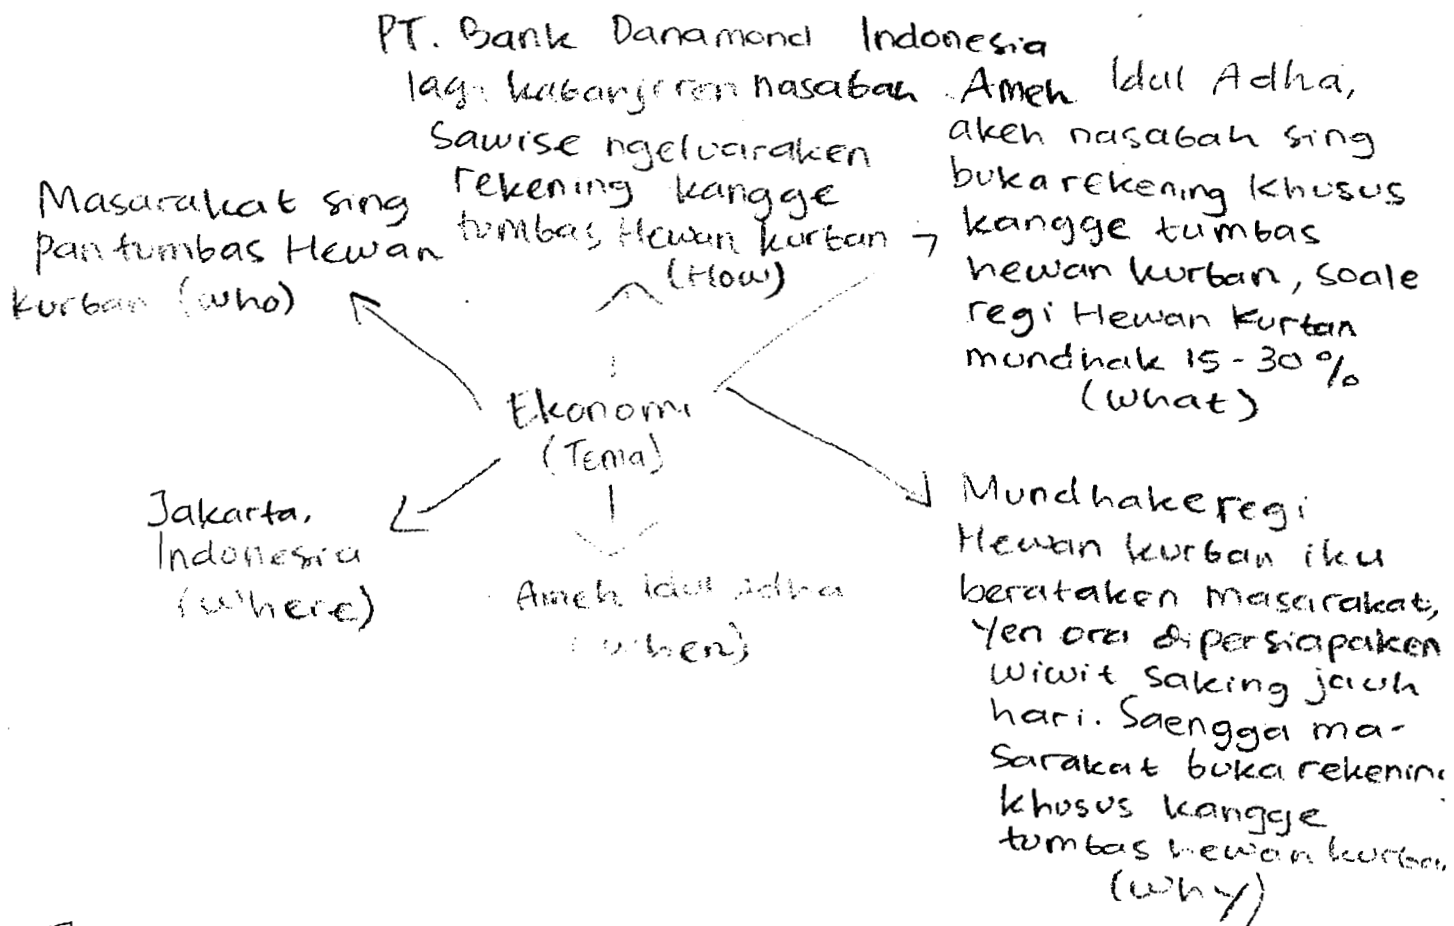 PT. Bank Danamond Indonesia
lagi kabanjiren nasabah
sawise ngeluaraken
rekening kangge
tumbas Hewan kurban
(How)
Ameh Idul Adha,
akeh nasabah sing
buka rekening khusus
kangge tumbas
hewan kurban, soale
regi Hewan kurban
mundhak 15-30%
(What)
Masarakat sing
pan tumbas Hewan
kurban (who)
Ekonomi
(Tema)
Jakarta,
Indonesia
(Where)
Ameh idul adha
(when)
Mundhake regi
Hewan kurban iku
berataken masarakat,
yen ora dipersiapaken
wiwit saking jauh
hari. Saengga ma-
sarakat buka rekening
khusus kangge
tumbas hewan kurban
(Why)